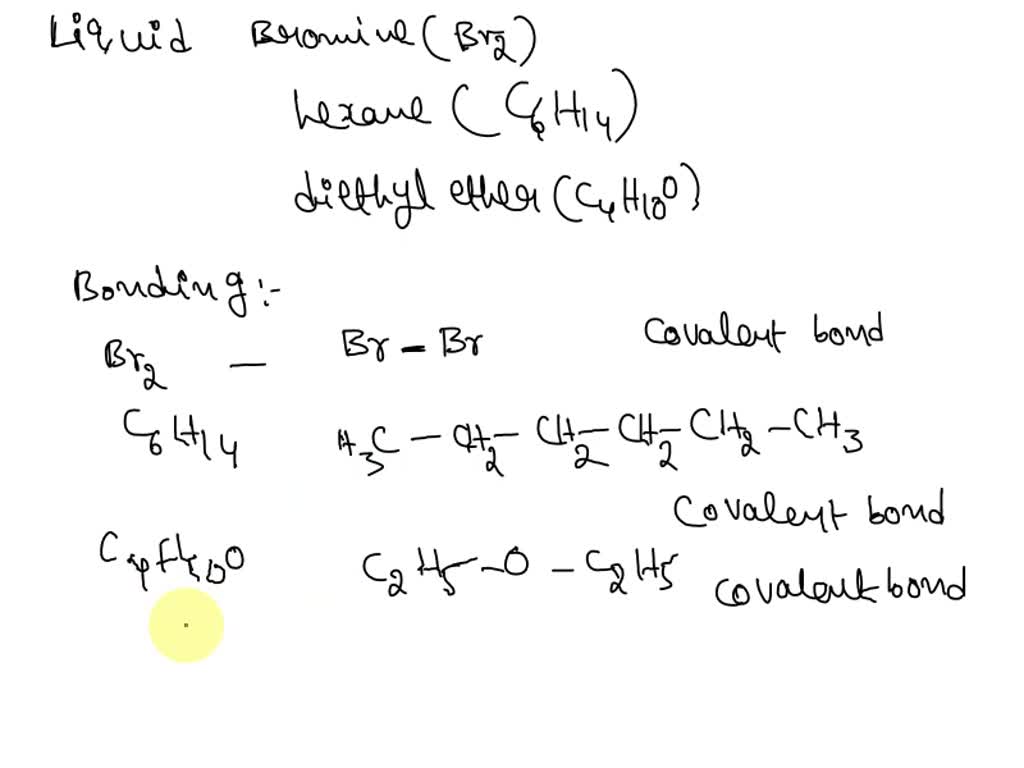 Liquid Bromine (Br2)
hexane (C6H14)
diethyl ether (C4H10O)
Bonding :-
Br2 — Br - Br covalent bond
C6H14 H3C — CH2 — CH2 — CH2 — CH2 — CH3
Covalent bond
C4H10O C2H5 — O — C2H5 covalent bond